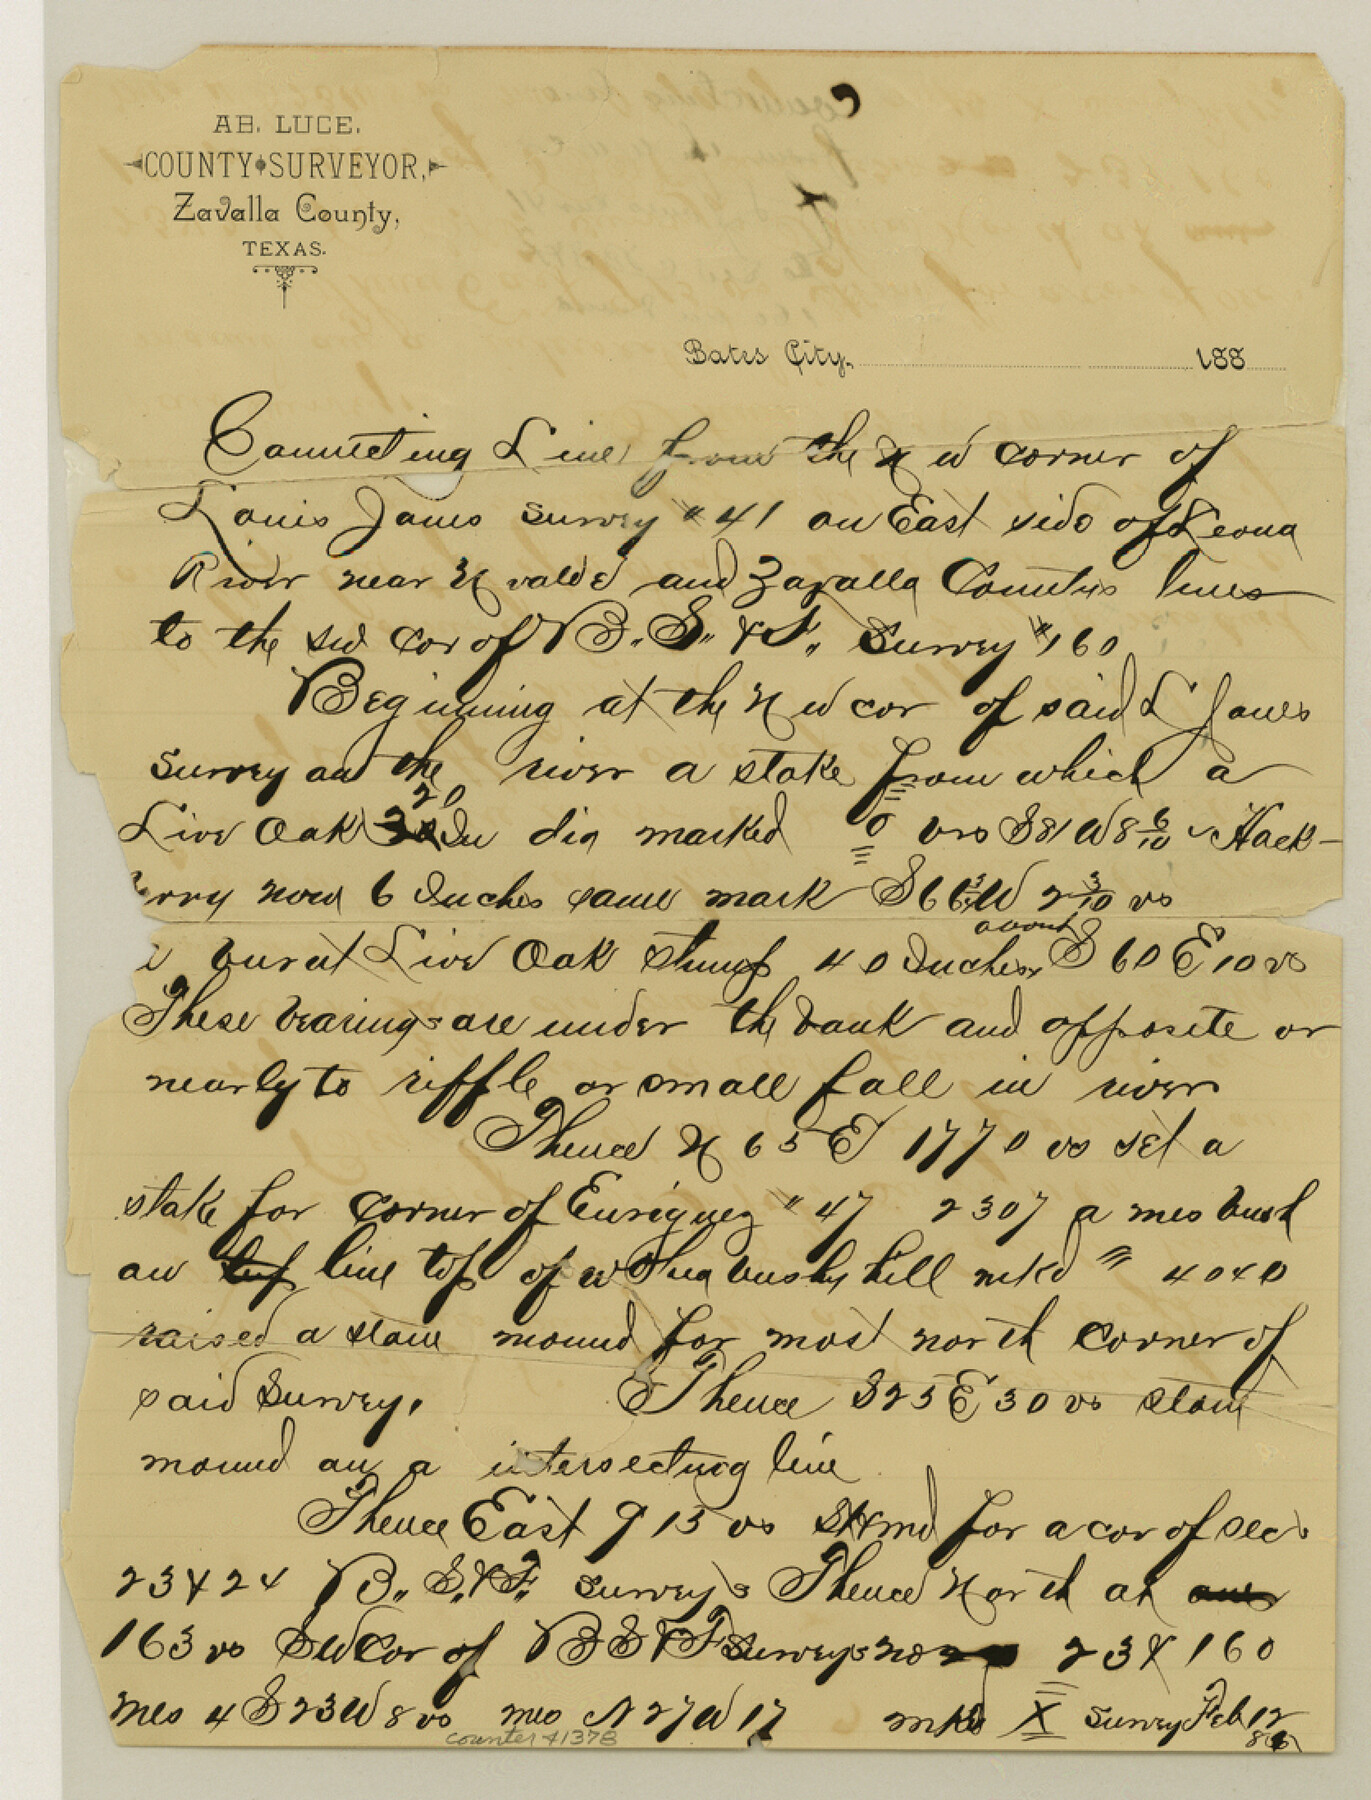 AB. LUCE.
COUNTY SURVEYOR,
Zavalla County,
TEXAS.
Bates City, 188
Connecting Line from the N W corner of
Louis Janes survey # 41 on East side of Leona
River near Uvalde and Zavalla Countys lines
to the SW cor of B. S. & F. Survey # 160
Beginning at the N W cor of said L Janes
survey on the river a stake from which a
20
Live Oak In dia marked vrs S 81 W 8 6/10 Hack-
rry now 6 Inches same mark S 66 W 2 3/10 vs
about
burnt Live Oak stump 40 Inches S 60 E 10 vs
These bearings are under the bank and opposite or
nearly to riffle or small fall in river
Thence N 65 E 1770 vs set a
stake for corner of Enriquez " 47 2307 a mes bush
on line top of bushy hill mkd 4040
raised a stone mound for most north corner of
said survey. Thence S 25 E 30 vs stone
mound on a intersecting line
Thence East 915 vs St md for a cor of secs
23 & 24 B. S. & F. surveys Thence North at
163 vs SW cor of B S & F Surveys no 23 & 160
Mes 4 S 23 W 8 vs mes N 27 W 17 mkd X Survey Feb 12
counter 41378